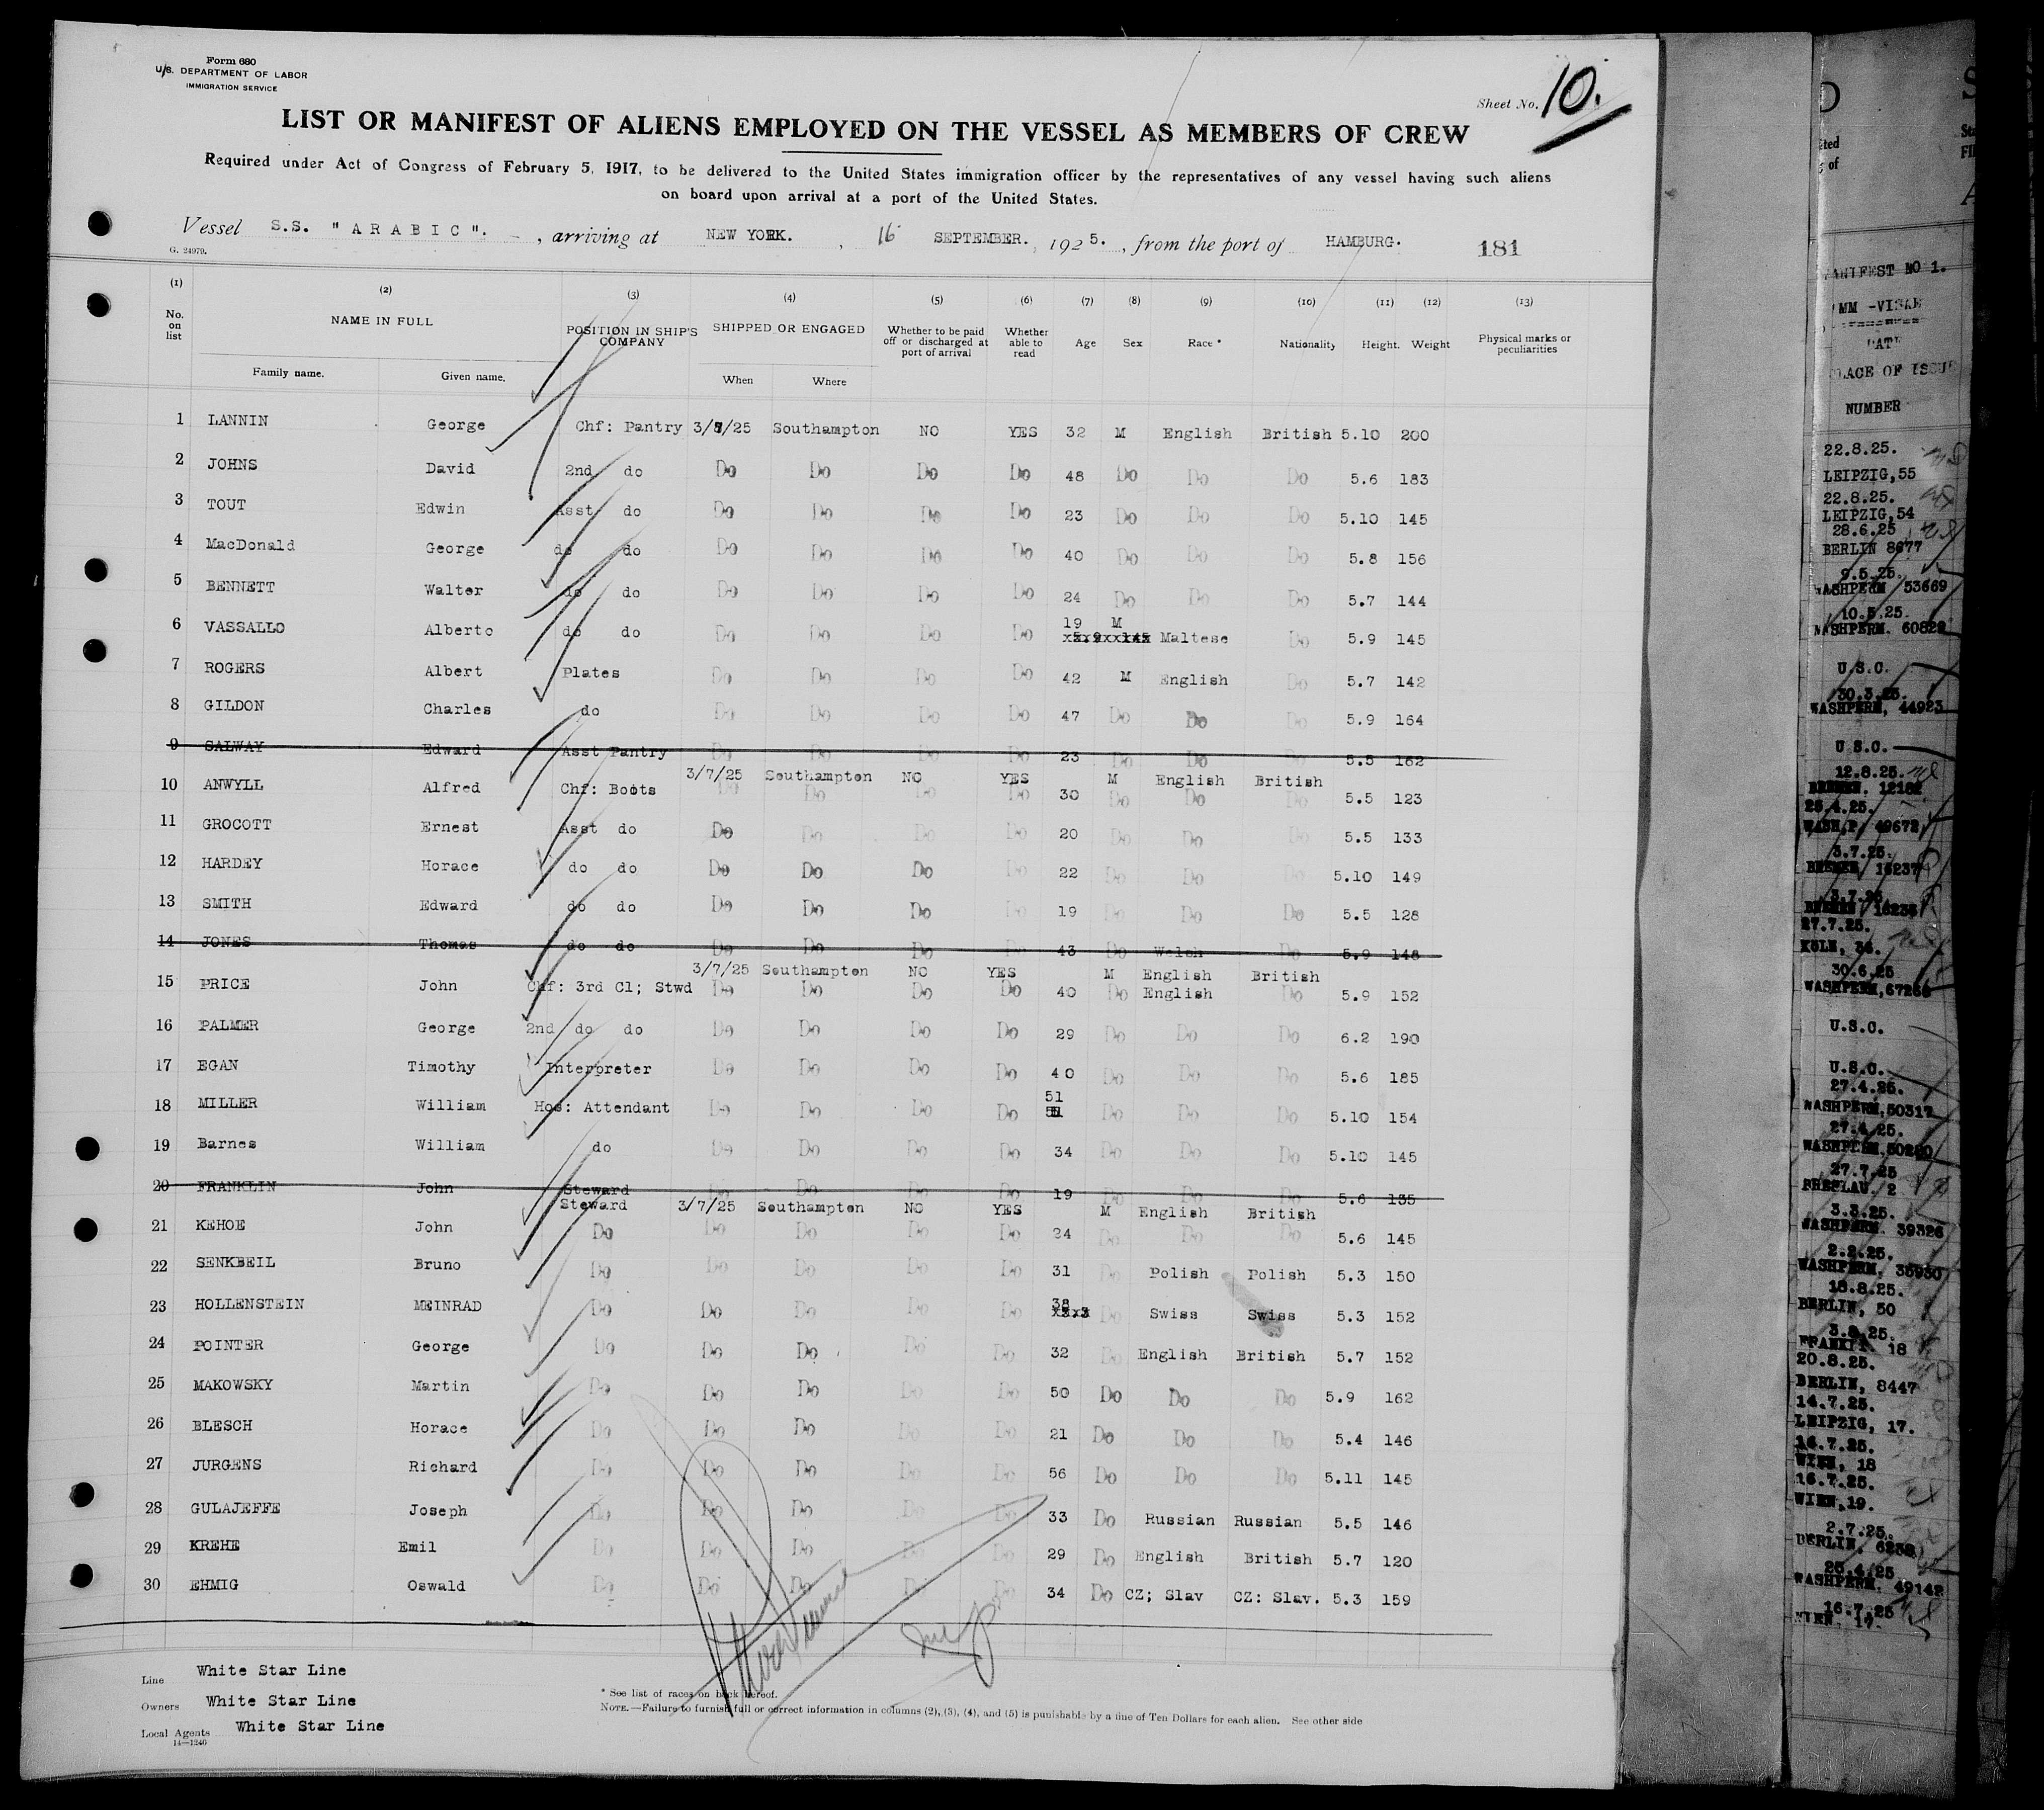 Form 680
U.S. DEPARTMENT OF LABOR
IMMIGRATION SERVICE
Sheet No. 10.
LIST OR MANIFEST OF ALIENS EMPLOYED ON THE VESSEL AS MEMBERS OF CREW
Required under Act of Congress of February 5, 1917, to be delivered to the United States immigration officer by the representatives of any vessel having such aliens
on board upon arrival at a port of the United States.
Vessel S.S. "ARABIC". , arriving at NEW YORK. , 16 SEPTEMBER. , 1925. , from the port of HAMBURG. 181
G. 24979.
(1) (2) (3) (4) (5) (6) (7) (8) (9) (10) (11) (12) (13)
No. on list NAME IN FULL POSITION IN SHIP'S COMPANY SHIPPED OR ENGAGED Whether to be paid off or discharged at port of arrival Whether able to read Age Sex Race * Nationality Height. Weight Physical marks or peculiarities
Family name. Given name. When Where
1 LANNIN George Chf: Pantry 3/7/25 Southampton NO YES 32 M English British 5.10 200
2 JOHNS David 2nd do Do Do Do Do 48 Do Do Do 5.6 183
3 TOUT Edwin Asst do Do Do Do Do 23 Do Do Do 5.10 145
4 MacDonald George do do Do Do Do Do 40 Do Do Do 5.8 156
5 BENNETT Walter do do Do Do Do Do 24 Do Do Do 5.7 144
6 VASSALLO Alberto do do Do Do Do Do 19 M Maltese Do 5.9 145
7 ROGERS Albert Plates Do Do Do Do 42 M English Do 5.7 142
8 GILDON Charles do Do Do Do Do 47 Do Do Do 5.9 164
9 SALWAY Edward Asst Pantry Do Do Do Do 23 Do Do Do 5.5 162
3/7/25 Southampton NO YES M English British
10 ANWYLL Alfred Chf: Boots Do Do Do Do 30 Do Do Do 5.5 123
11 GROCOTT Ernest Asst do Do Do Do Do 20 Do Do Do 5.5 133
12 HARDEY Horace do do Do Do Do Do 22 Do Do Do 5.10 149
13 SMITH Edward do do Do Do Do Do 19 Do Do Do 5.5 128
14 JONES Thomas do do Do Do Do Do 43 Do Welsh Do 5.9 148
3/7/25 Southampton NO YES M English British
15 PRICE John Chf: 3rd Cl; Stwd Do Do Do Do 40 Do English Do 5.9 152
16 PALMER George 2nd do do Do Do Do Do 29 Do Do Do 6.2 190
17 EGAN Timothy Interpreter Do Do Do Do 40 Do Do Do 5.6 185
18 MILLER William Hos: Attendant Do Do Do Do 51 Do Do Do 5.10 154
19 Barnes William do Do Do Do Do 34 Do Do Do 5.10 145
20 FRANKLIN John Steward Do Do Do Do 19 Do Do Do 5.6 135
Steward 3/7/25 Southampton NO YES M English British
21 KEHOE John Do Do Do Do Do 24 Do Do Do 5.6 145
22 SENKBEIL Bruno Do Do Do Do Do 31 Do Polish Polish 5.3 150
23 HOLLENSTEIN MEINRAD Do Do Do Do Do 38 Do Swiss Swiss 5.3 152
24 POINTER George Do Do Do Do Do 32 Do English British 5.7 152
25 MAKOWSKY Martin Do Do Do Do Do 50 Do Do Do 5.9 162
26 BLESCH Horace Do Do Do Do Do 21 Do Do Do 5.4 146
27 JURGENS Richard Do Do Do Do Do 56 Do Do Do 5.11 145
28 GULAJEFFE Joseph Do Do Do Do Do 33 Do Russian Russian 5.5 146
29 KREHE Emil Do Do Do Do Do 29 Do English British 5.7 120
30 EHMIG Oswald Do Do Do Do Do 34 Do CZ; Slav CZ: Slav. 5.3 159
Line White Star Line
Owners White Star Line
Local Agents White Star Line
14—1240
* See list of races on back hereof.
NOTE.—Failure to furnish full or correct information in columns (2), (3), (4), and (5) is punishable by a fine of Ten Dollars for each alien. See other side
MANIFEST NO 1.
PLACE OF ISSUE
NUMBER
22.8.25.
LEIPZIG,55
22.8.25.
LEIPZIG,54
28.6.25
BERLIN 8677
9.5.25.
WASHPERM 53669
10.5.25.
WASHPERM. 60822
U.S.C.
30.3.25.
WASHPERM, 44923
U.S.C.
12.8.25.
BREMEN. 12162
25.4.25.
WASH.P. 49672
3.7.25.
BREMEN 16237
3.7.25
BREMEN
27.7.25.
KOLN, 36.
30.6.25
WASHPERM,
U.S.C.
U.S.C.
27.4.25.
WASHPERM,50317
27.4.25.
WASHPERM,
27.7.25
BRESLAU. 2
3.3.25.
WASHPERM. 39326
2.2.25.
WASHPERM. 35930
18.8.25.
BERLIN, 50
3.8.25.
FRANKFT. 18
20.8.25.
BERLIN, 8447
14.7.25.
LEIPZIG, 17.
16.7.25.
WIEN, 18
16.7.25.
WIEN,19.
2.7.25.
BERLIN, 6238
25.4.25
WASHPERM. 49142
16.7.25
WIEN. 17.